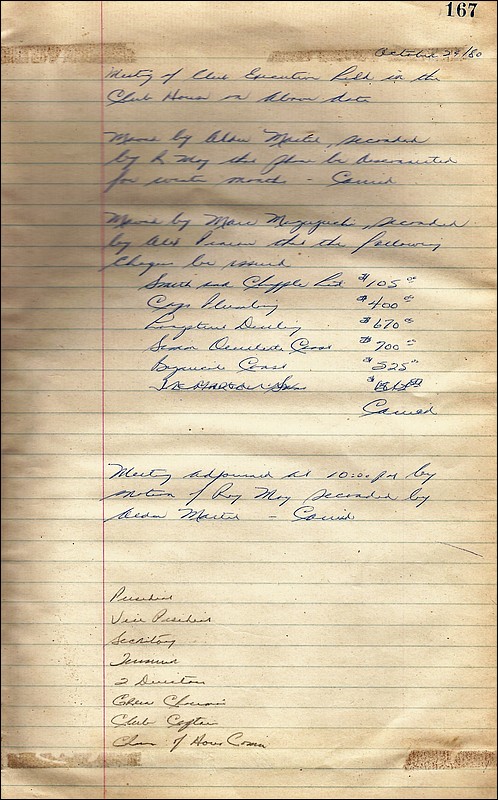 167
October 29/80
Meeting of Club Executive held in the
Club House on above date
Moved by Alden Martel, seconded
by R May that phone be disconnected
for winter months - Carried
Moved by Marc, seconded
by Alex that the following
Cheques be issued
Smith and Chapple Ltd $105 00
Plumbing $400 00
$670 00
$700 00
$525 00
$
Carried
Meeting adjourned at 10:00 pm by
motion of Roy May seconded by
Alden Martel - Carried
President
Vice President
Secretary
Treasurer
2 Directors
Green Chairman
Club Captain
Chair of House Comm